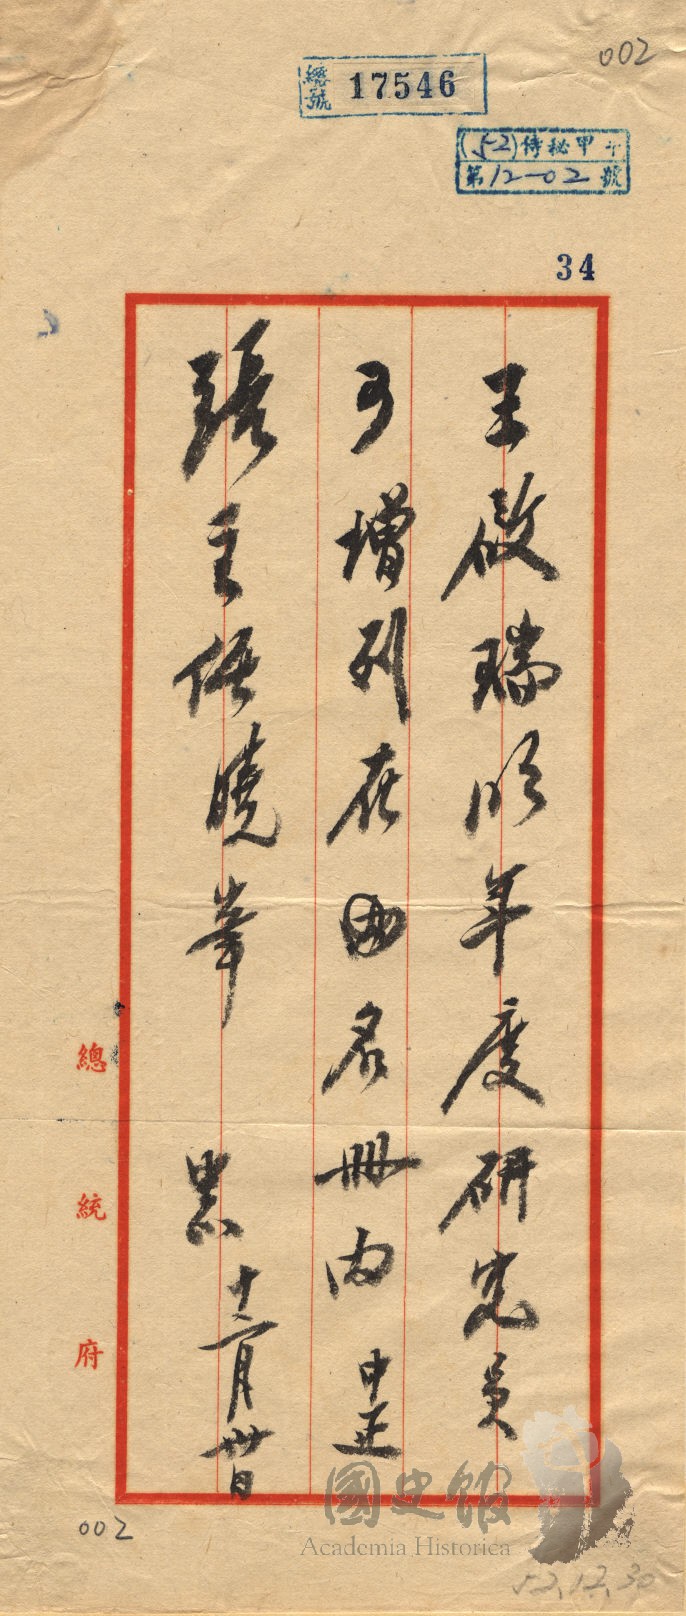 002
總號 17546
(52)侍秘甲字
第12-02號
34
王啟瑞明年度研究員
可增列在內名冊內 中正
張主任曉峯 十二月卅日
總統府
002
國史館
Academia Historica
52.12.30